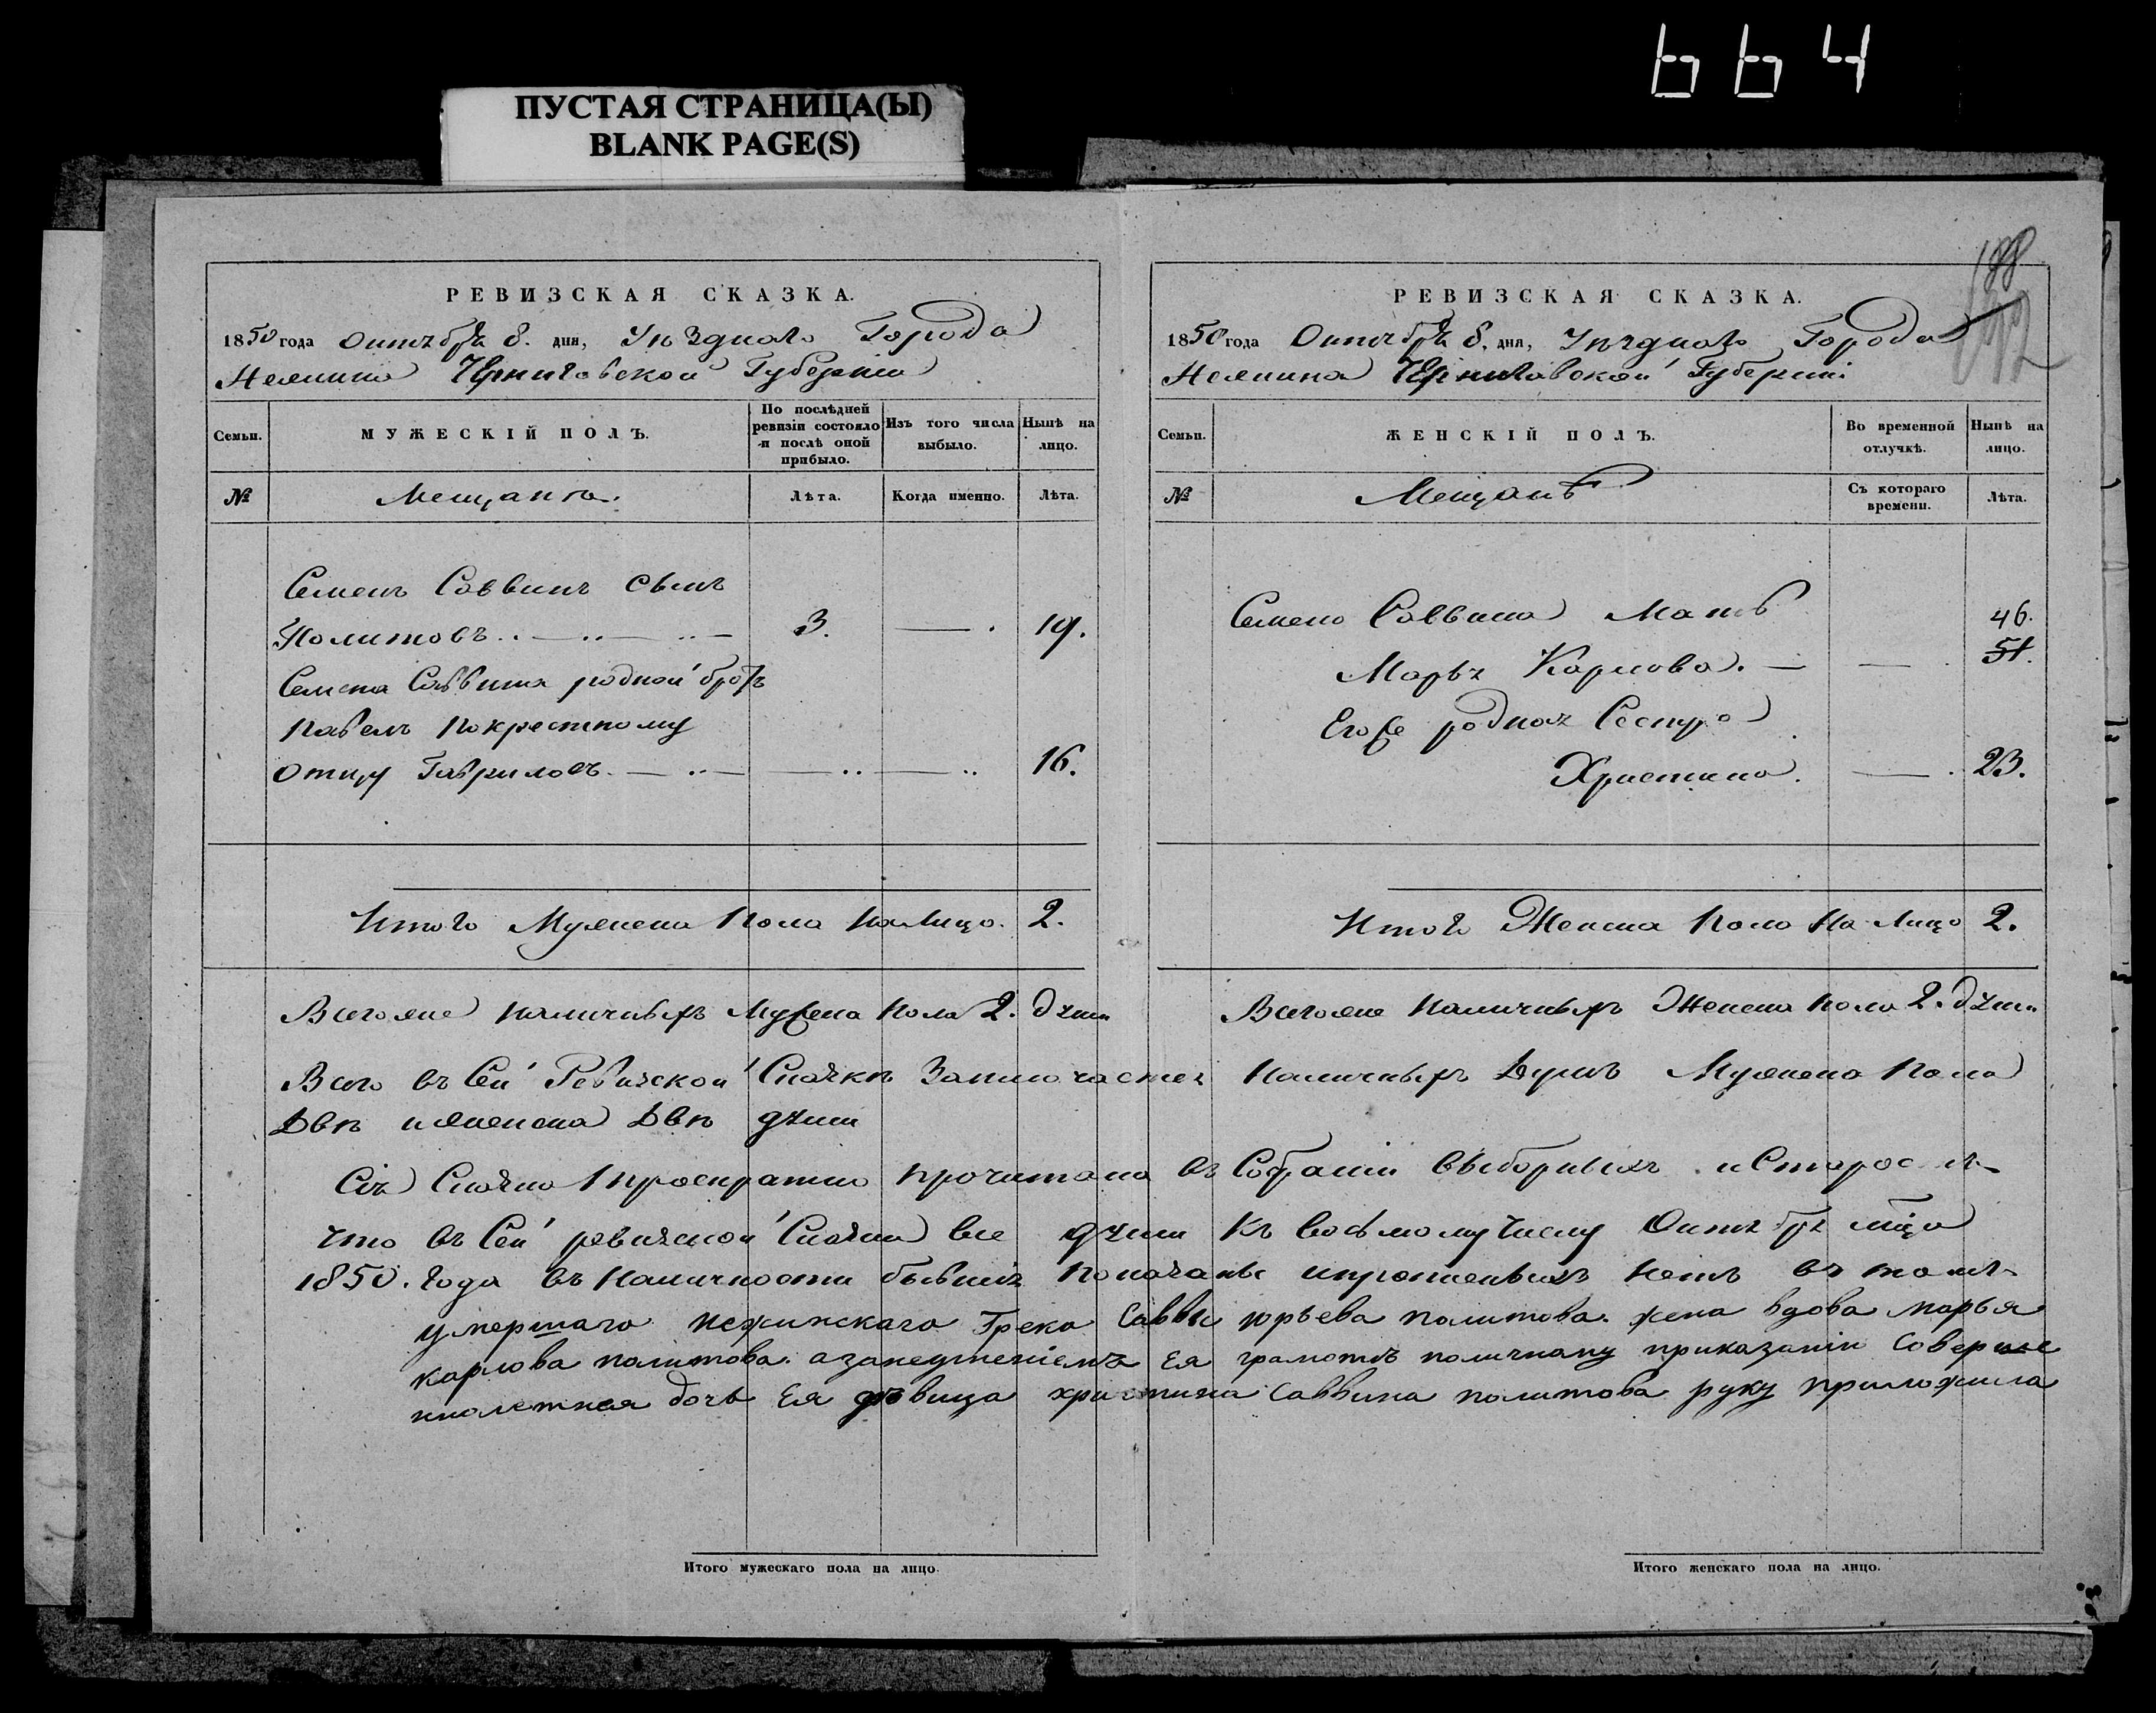 664
ПУСТАЯ СТРАНИЦА(Ы)
BLANK PAGE(S)
РЕВИЗСКАЯ СКАЗКА.
1850 года Октября 8. дня, Уезднаго Города
Нежина Черниговской Губерніи
Семьи.
МУЖЕСКІЙ ПОЛЪ.
По послѣдней ревизіи состояло и послѣ оной прибыло.
Изъ того числа выбыло.
Нынѣ на лицо.
№
Мещанъ.
Лѣта.
Когда именно.
Лѣта.
Семенъ Саввинъ сынъ
Политовъ 3. 19.
Семена Саввина родной братъ
Павелъ по крестному
отцу Гавриловъ. 16.
Итого Мужеска Пола на Лицо. 2.
Всегоже наличныхъ Мужеска Пола 2. души
Итого мужескаго пола на лицо.
РЕВИЗСКАЯ СКАЗКА.
1850 года Октября 8. дня, Уезднаго Города
Нежина Черниговской Губерніи
Семьи.
ЖЕНСКІЙ ПОЛЪ.
Во временной отлучкѣ.
Нынѣ на лицо.
№
Мещанъ
Съ котораго времени.
Лѣта.
Семена Саввина Мать 46.
Марья Карлова. 51.
Егоже родная Сестра
Христина. 23.
Итого Женска Пола на Лицо 2.
Всегоже наличныхъ Женска пола 2. души
Всего въ Сей Ревизской Сказкѣ Заключается наличныхъ Душъ Мужеска Пола
Двѣ и женска Двѣ души
Сія Сказка троекратно прочитана въ Собраніи выборныхъ и Старостъ
что въ Сей ревизской Сказки все души къ восьмому числу Октября мца
1850. года въ наличности бывшія показаны и пропущеныхъ нетъ въ томъ
умершаго нежинскаго Грека Саввы юрьева политова. жена вдова марья
карлова политова. а занеуменіемъ Ея грамотѣ поличному приказанію Соверше
ннолетняя дочь Ея дѣвица христина Саввина политова руку приложила
Итого женскаго пола на лицо.